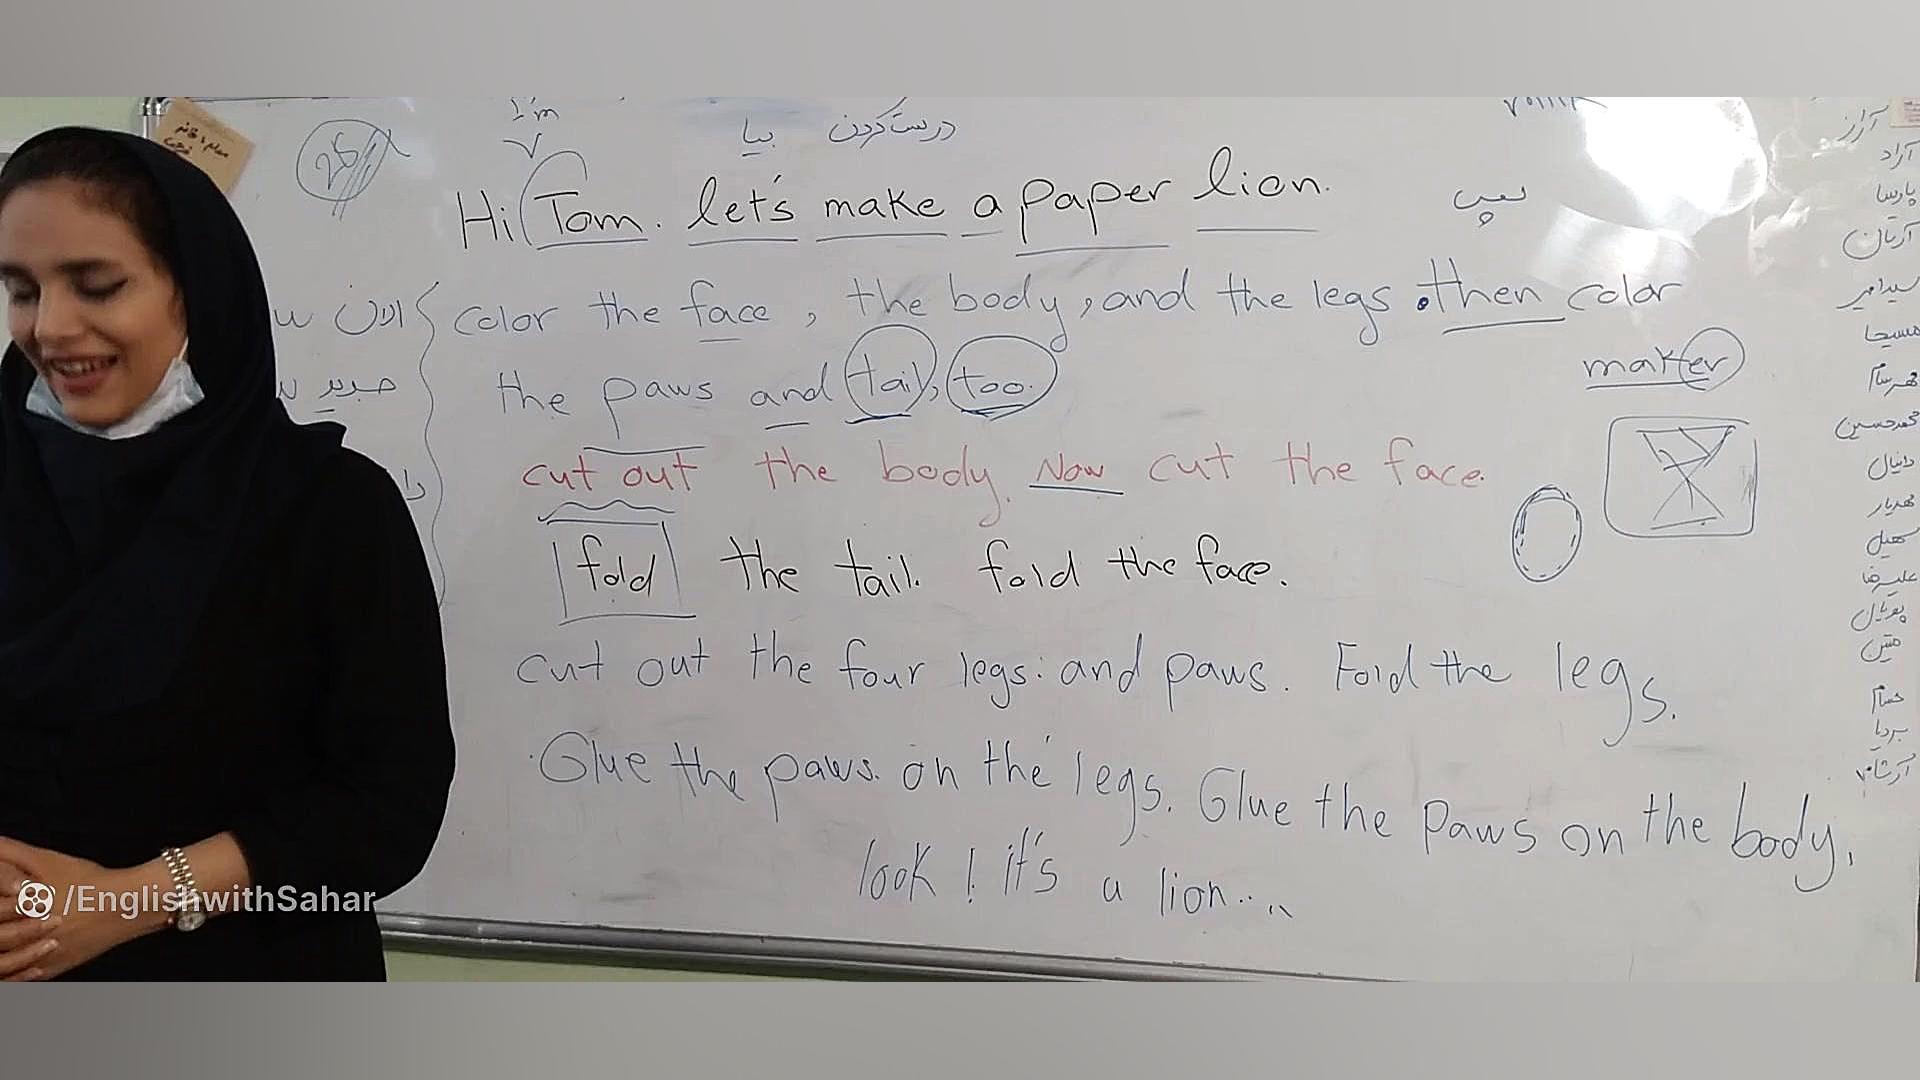 I'm
بیا درست کردن
Hi Tom. let's make a paper lion.
color the face, the body, and the legs. then color
the paws and tail, too.
maker
cut out the body. Now cut the face.
fold the tail. fold the face.
cut out the four legs. and paws. Fold the legs.
Glue the paws. on the legs. Glue the paws on the body,
look! it's a lion....
الان
جدید
آراز
آراد
پارسا
آریان
سیدامیر
مسیحا
مهرسام
محمدحسین
دانیال
مهدیار
سهیل
علیرضا
پویان
متین
حسام
بردیا
آرشام
/EnglishwithSahar